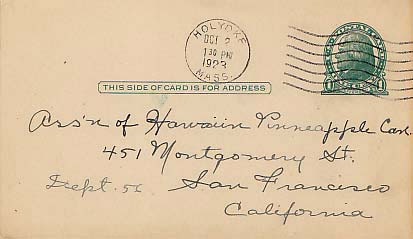 HOLYOKE
OCT 2
1 30 PM
1923
MASS.
THIS SIDE OF CARD IS FOR ADDRESS
Ass'n of Hawaiin Pinneapple Can.
451 Montgomery St.
Dept. 56 San Francisco
California